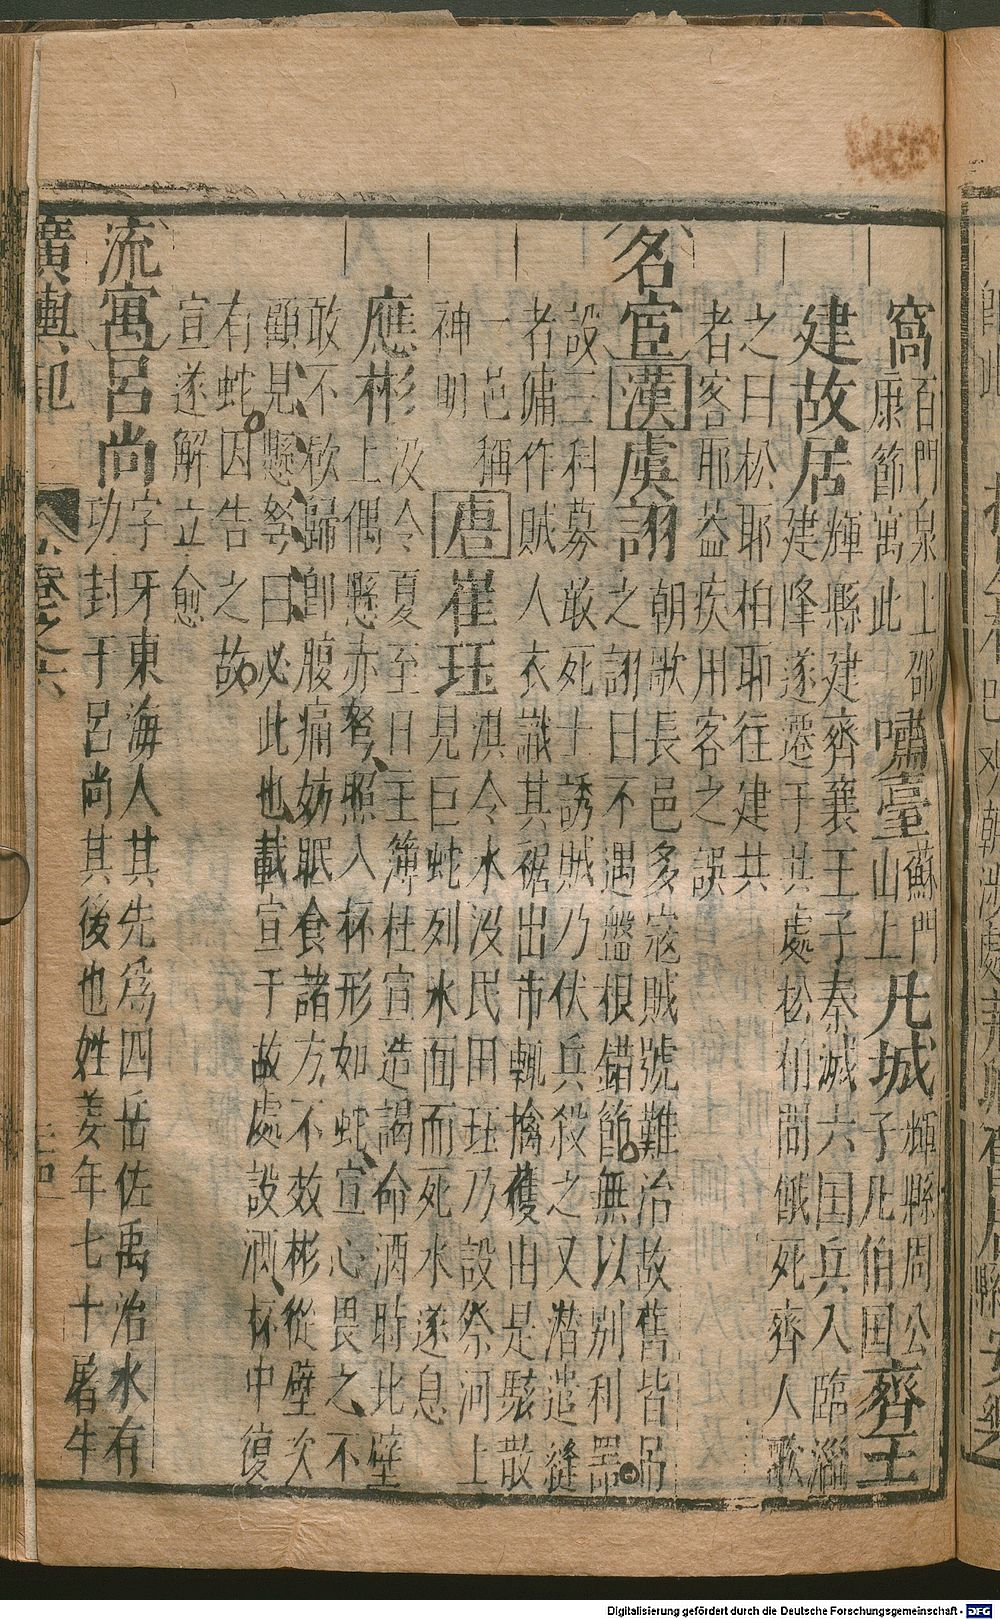 窩百門泉上邵
康節寓此
嘯臺蘇門
山上
凡城輝縣周公
子凡伯国
齊王
建故居輝縣建齊襄王子秦滅六国兵入臨淄
建降遂遷于共處松柏間餓死齊人歌
之曰松耶柏耶住建共
者客耶葢疾用客之誤
名宦漢虞詡朝歌長邑多寇賊號難治故舊皆吊
之詡曰不遇盤根錯節無以別利器
設三科募敢死士誘賊乃伏兵殺之又潜遣縫
者傭作賊人衣識其裾出市輒擒獲由是駭散
一邑稱
神明
唐崔珏淇令水沒民田珏乃設祭河上
見巨蛇列水面而死水遂息
應彬汲令夏至日主簿杜宣造謁命酒時北壁
上偶懸亦弩照入杯形如蛇宣心畏之不
敢不飲歸卽腹痛妨眠食諸方不效彬從壁次
顧見懸弩曰必此也載宣于故處設酒杯中復
有蛇因告之故
宣遂解立愈
流寓呂尚字牙東海人其先爲四岳佐禹治水有
功封于呂尚其後也姓姜年七十屠牛
廣輿記 卷之六
Digitalisierung gefördert durch die Deutsche Forschungsgemeinschaft - DFG